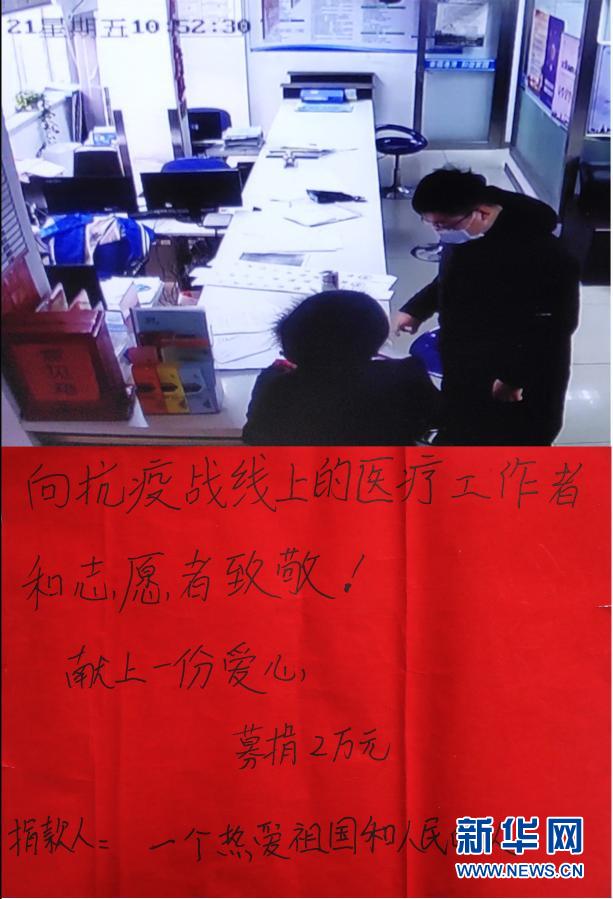 21 星期五 10:52:30
向抗疫战线上的医疗工作者
和志愿者致敬！
献上一份爱心，
募捐2万元
捐款人： 一个热爱祖国和人民的人
新华网
WWW.NEWS.CN